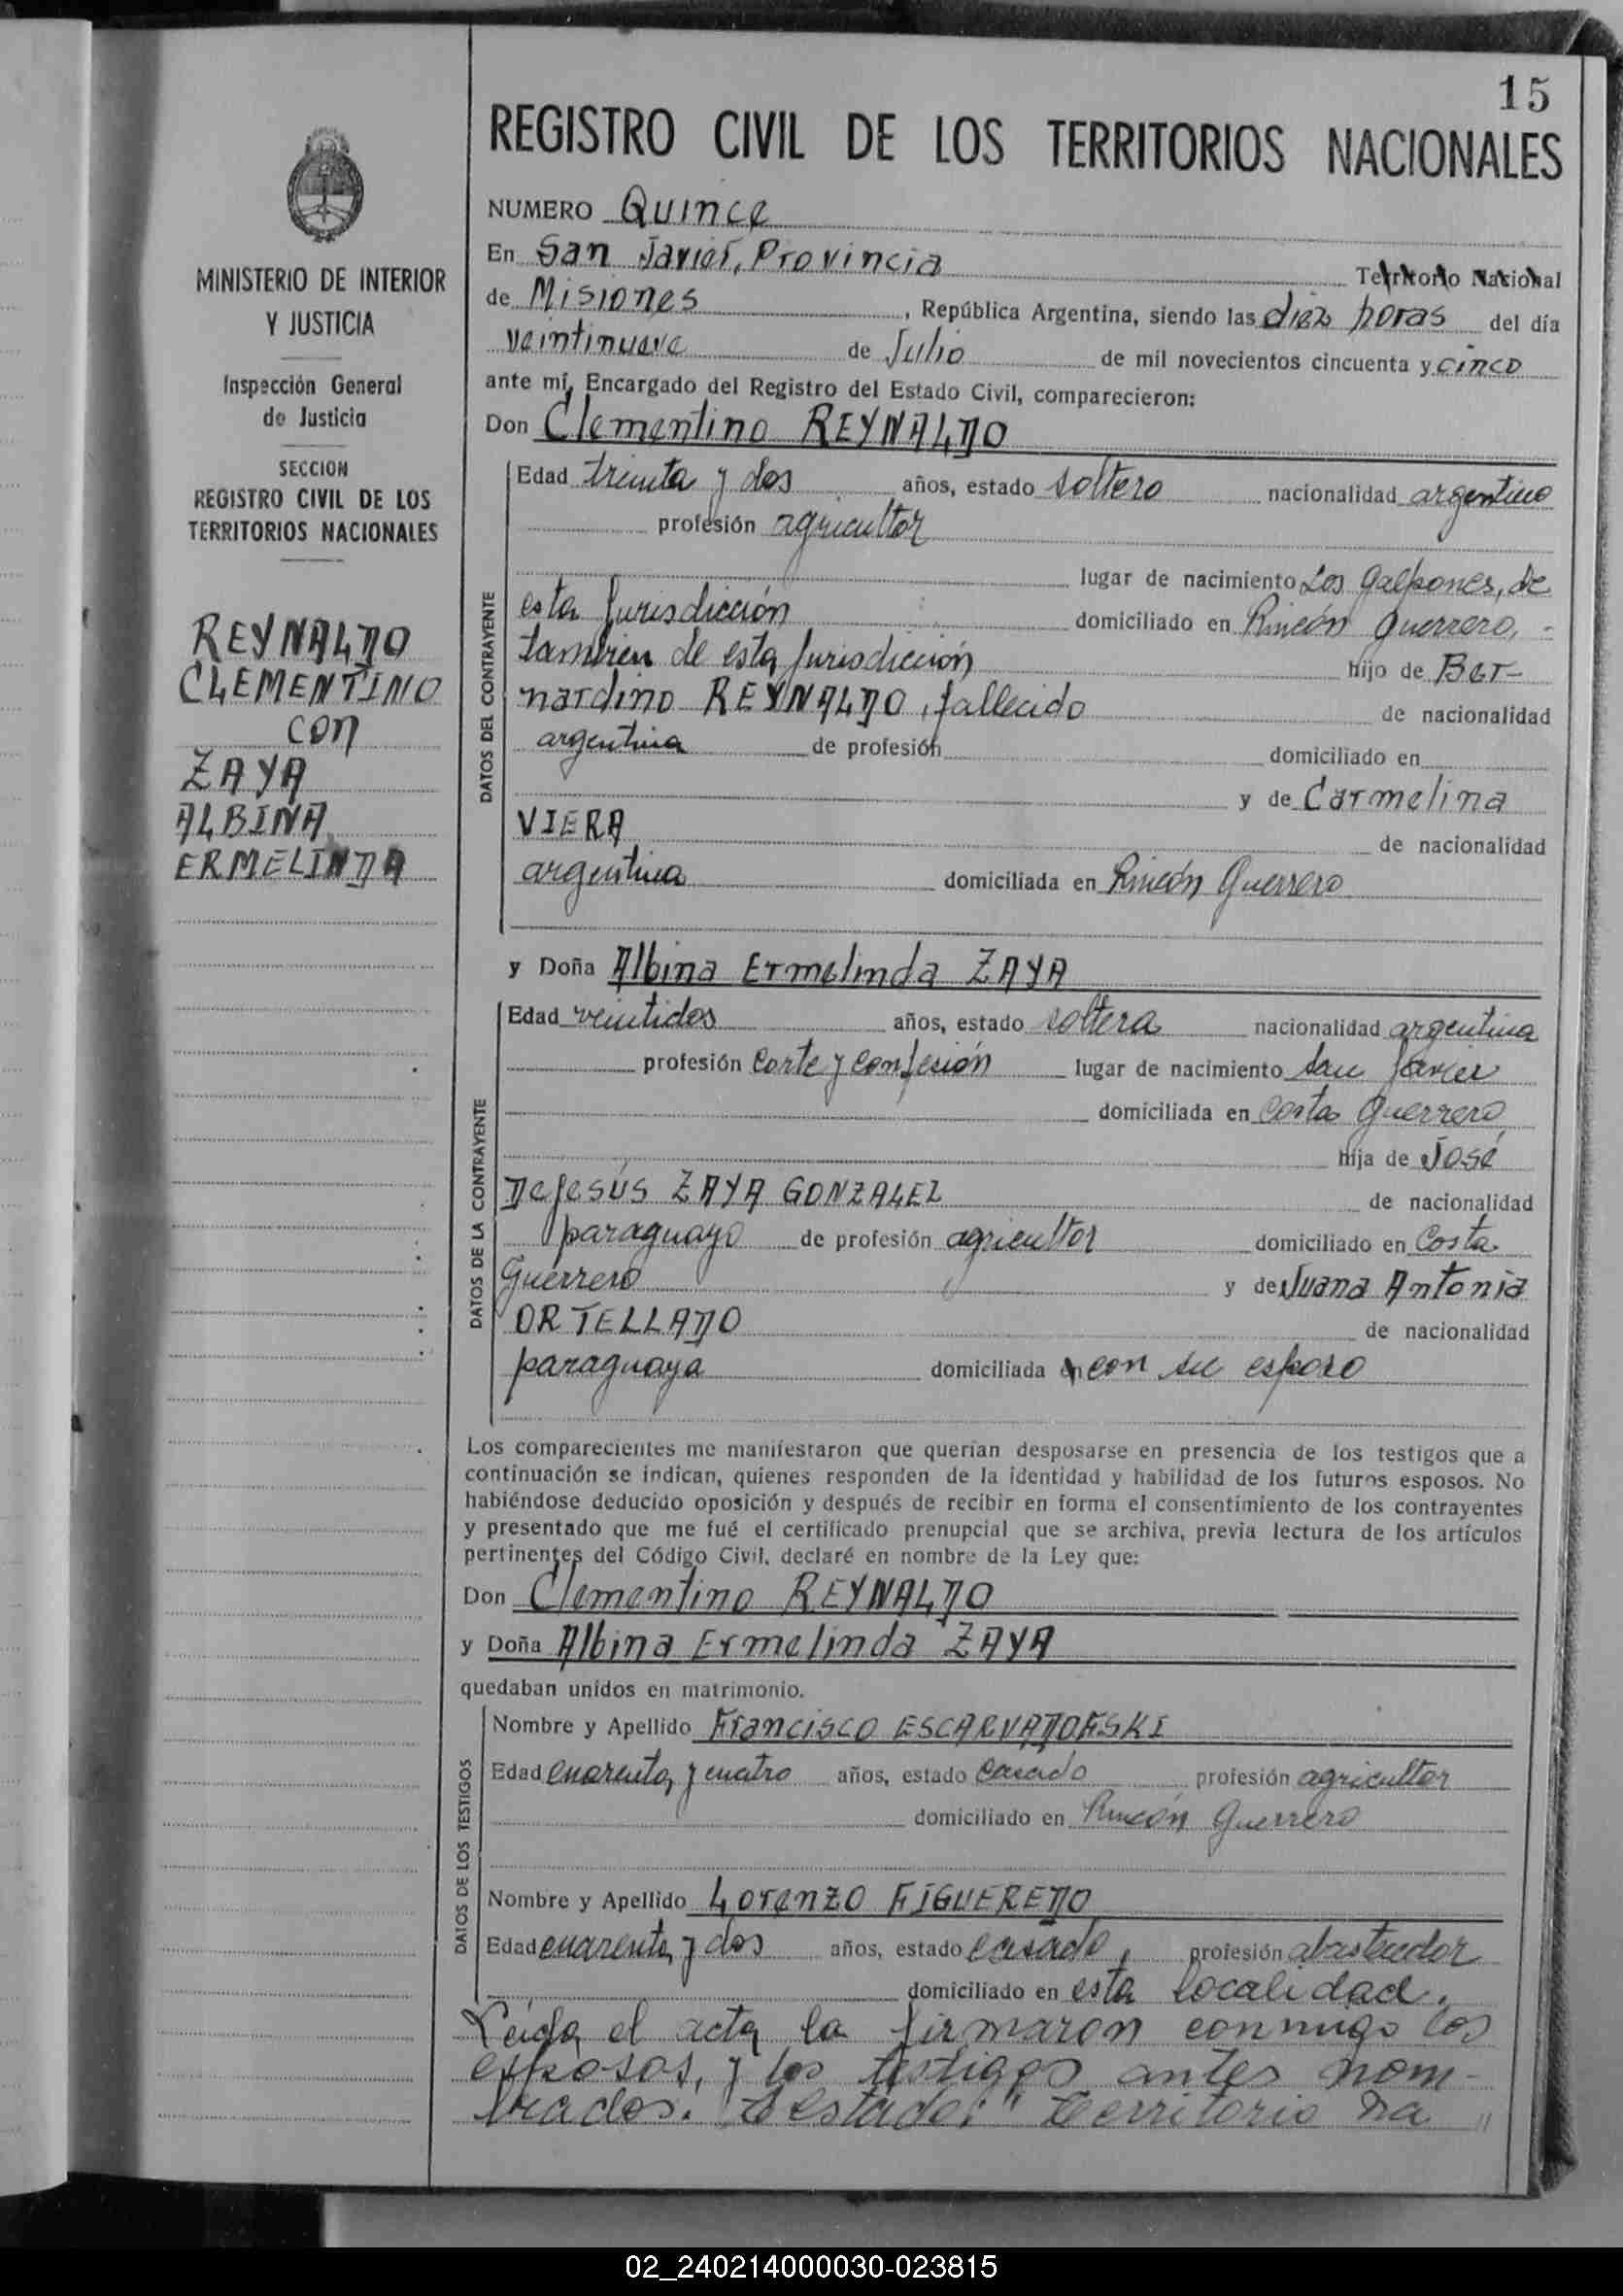 15
REGISTRO CIVIL DE LOS TERRITORIOS NACIONALES
MINISTERIO DE INTERIOR
Y JUSTICIA
Inspección General
de Justicia
SECCION
REGISTRO CIVIL DE LOS
TERRITORIOS NACIONALES
REYNALDO
CLEMENTINO
con
ZAYA
ALBINA
ERMELINDA
NUMERO Quince
En San Javier, Provincia Territorio Nacional
de Misiones, República Argentina, siendo las diez horas del día
veintinueve de Julio de mil novecientos cincuenta y cinco
ante mí, Encargado del Registro del Estado Civil, comparecieron:
Don Clementino REYNALDO
DATOS DEL CONTRAYENTE
Edad treinta y dos años, estado soltero nacionalidad argentino
profesión agricultor
lugar de nacimiento Los Galpones, de
esta Jurisdicción domiciliado en Rincón Guerrero, -
tambien de esta Jurisdicción hijo de Ber-
nardino REYNALDO, fallecido de nacionalidad
argentina de profesión domiciliado en
y de Carmelina
VIERA de nacionalidad
argentina domiciliada en Rincón Guerrero
y Doña Albina Ermelinda ZAYA
DATOS DE LA CONTRAYENTE
Edad veintidos años, estado soltera nacionalidad argentina
profesión Corte y confesión lugar de nacimiento San Javier
domiciliada en Costa Guerrero
hija de José
DeJesús ZAYA GONZALEZ de nacionalidad
paraguayo de profesión agricultor domiciliado en Costa
Guerrero y de Juana Antonia
ORTELLADO de nacionalidad
paraguaya domiciliada en con su esposo
Los comparecientes me manifestaron que querían desposarse en presencia de los testigos que a
continuación se indican, quienes responden de la identidad y habilidad de los futuros esposos. No
habiéndose deducido oposición y después de recibir en forma el consentimiento de los contrayentes
y presentado que me fué el certificado prenupcial que se archiva, previa lectura de los artículos
pertinentes del Código Civil, declaré en nombre de la Ley que:
Don Clementino REYNALDO
y Doña Albina Ermelinda ZAYA
quedaban unidos en matrimonio.
DATOS DE LOS TESTIGOS
Nombre y Apellido Francisco ESCARVADOFSKI
Edad cuarenta y cuatro años, estado casado profesión agricultor
domiciliado en Rincón Guerrero
Nombre y Apellido Lorenzo FIGUEREDO
Edad cuarenta y dos años, estado casado, profesión abastecedor
domiciliado en esta localidad.
Leída el acta la firmaron conmigo los
esposos, y los testigos antes nom-
brados. Testado: "Territorio Na"
02_240214000030-023815